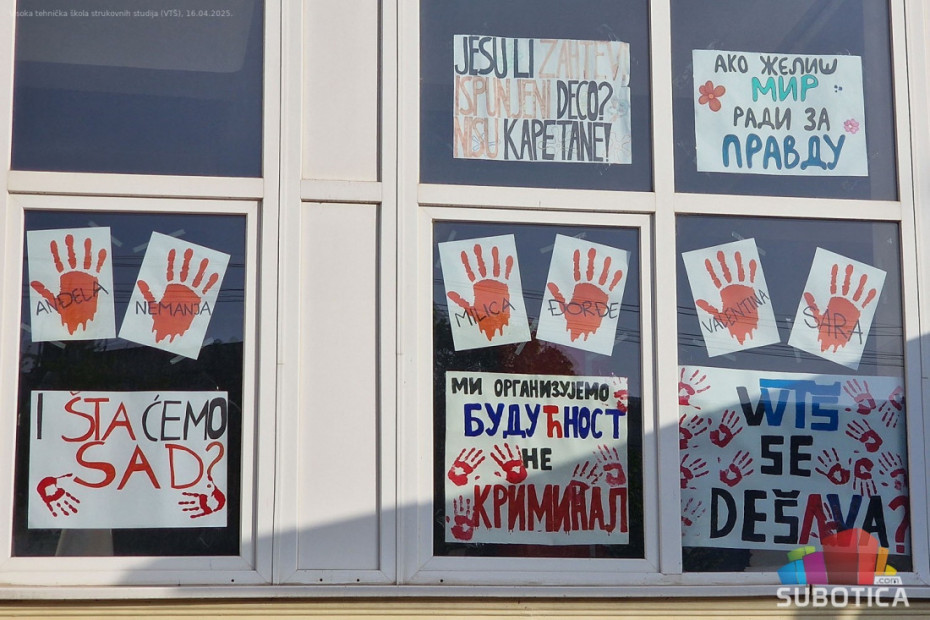 Visoka tehnička škola strukovnih studija (VTŠ), 16.04.2025.
JESU LI ZAHTEVI
ISPUNJENI DECO?
NISU KAPETANE!
АКО ЖЕЛИШ
МИР
РАДИ ЗА
ПРАВДУ
ANĐELA
NEMANJA
MILICA
ĐORĐE
VALENTINA
SARA
I ŠTA ĆEMO
SAD?
МИ ОРГАНИЗУЈЕМО
БУДУЋНОСТ
НЕ
КРИМИНАЛ
WTŠ
SE
DEŠAVA?
SUBOTICA
.com